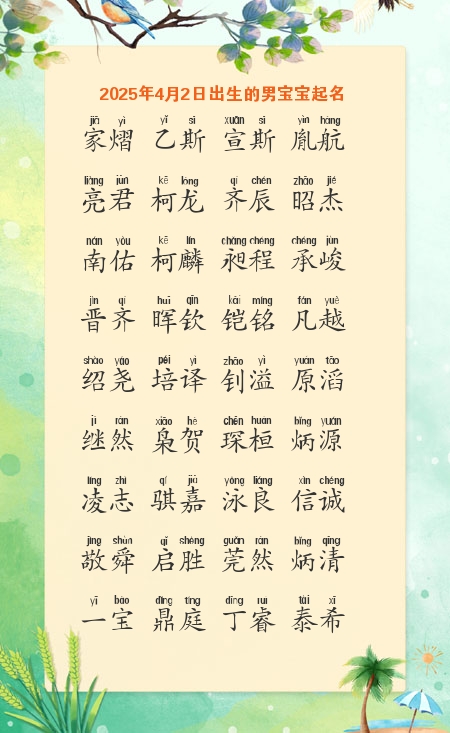 2025年4月2日出生的男宝宝起名
jiā yì yǐ sī xuān sī yìn háng
家熠 乙斯 宣斯 胤航
liàng jūn kē lóng qí chén zhāo jié
亮君 柯龙 齐辰 昭杰
nán yòu kē lín chǎng chéng chéng jùn
南佑 柯麟 昶程 承峻
jìn qí huī qīn kǎi míng fán yuè
晋齐 晖钦 铠铭 凡越
shào yáo péi yì zhāo yì yuán tāo
绍尧 培译 钊溢 原滔
jì rán xiāo hè chēn huán bǐng yuán
继然 枭贺 琛桓 炳源
líng zhì qí jiā yǒng liáng xìn chéng
凌志 骐嘉 泳良 信诚
jìng shùn qǐ shèng guǎn rán bǐng qīng
敬舜 启胜 莞然 炳清
yī bǎo dǐng tíng dīng ruì tài xī
一宝 鼎庭 丁睿 泰希